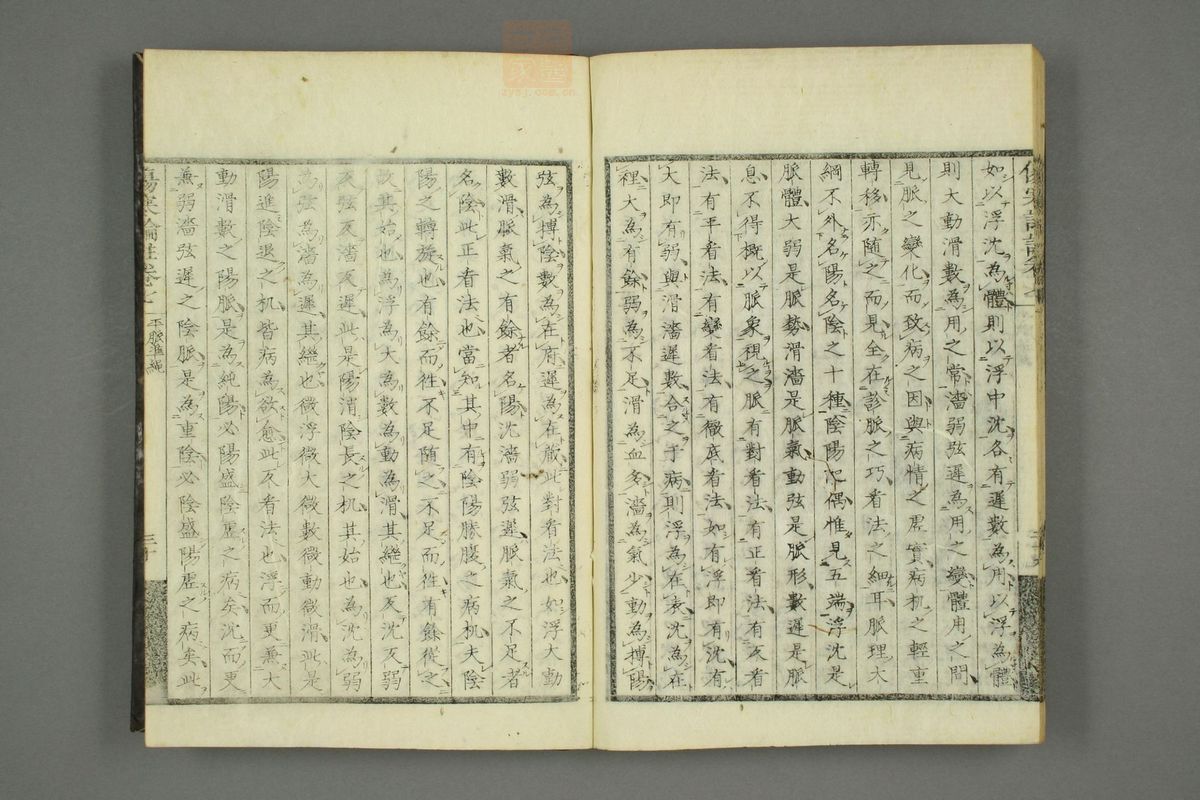 如以浮沈為體則以浮中沈各有遲數為用以浮為體
則大動滑數為用之常濇弱弦遲為用之變體用之間
見脈之變化而致病之因與病情之虛實病机之輕重
轉移亦隨之而見全在診脈之巧看法之細耳脈理大
綱不外名陽名陰之十種陰陽配偶惟見五端浮沈是
脈體大弱是脈勢滑濇是脈氣動弦是脈形數遲是脈
息不得概以脈象視之脈有對看法有正看法有反看
法有平看法有變看法有徹底看法如有浮即有沈有
大即有弱與滑濇遲數合之于病則浮為在表沈為在
裡大為有餘弱為不足滑為血多濇為氣少動為搏陽
弦為搏陰數為在府遲為在藏此對看法也如浮大動
數滑脈氣之有餘者名陽沈濇弱弦遲脈氣之不足者
名陰此正看法也當知其中有陰陽勝腹之病机夫陰
陽之轉旋也有餘而徃不足隨之不足而徃有餘從之
故其始也為浮為大為數為動為滑其繼也反沈反弱
反弦反濇反遲此是陽消陰長之机其始也為沈為弱
為弦為濇為遲其繼也微浮微大微數微動微滑此是
陽進陰退之机皆病為欲愈此反看法也浮而更兼大
動滑數之陽脈是為純陽必陽盛陰虛之病矣沈而更
兼弱濇弦遲之陰脈是為重陰必陰盛陽虛之病矣此
傷寒論註卷七
平脈準繩
三十
zysj.com.cn